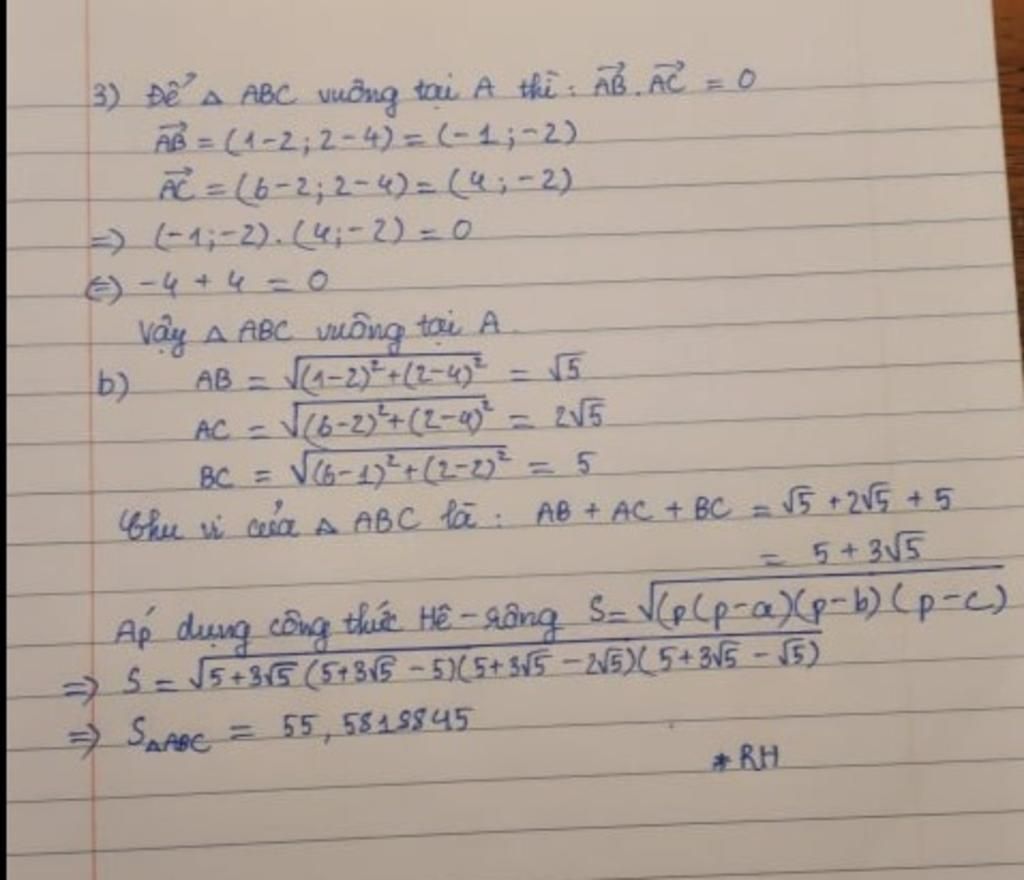 3) Để △ ABC vuông tại A thì: $\overrightarrow{AB}.\overrightarrow{AC} = 0$
$\overrightarrow{AB} = (1-2; 2-4) = (-1; -2)$
$\overrightarrow{AC} = (6-2; 2-4) = (4; -2)$
⇒ (-1; -2).(4; -2) = 0
⇔ -4 + 4 = 0
Vậy △ ABC vuông tại A.
b) AB = $\sqrt{(1-2)^2+(2-4)^2}$ = √5
AC = $\sqrt{(6-2)^2+(2-4)^2}$ = 2√5
BC = $\sqrt{(6-1)^2+(2-2)^2}$ = 5
Chu vi của △ ABC là: AB + AC + BC = √5 + 2√5 + 5
= 5 + 3√5
Áp dụng công thức Hê-rông S = $\sqrt{(p(p-a)(p-b)(p-c)}$
⇒ S = $\sqrt{5+3\sqrt{5}(5+3\sqrt{5}-5)(5+3\sqrt{5}-2\sqrt{5})(5+3\sqrt{5}-\sqrt{5})}$
⇒ $S_{△ABC}$ = 55,5819845
*RH